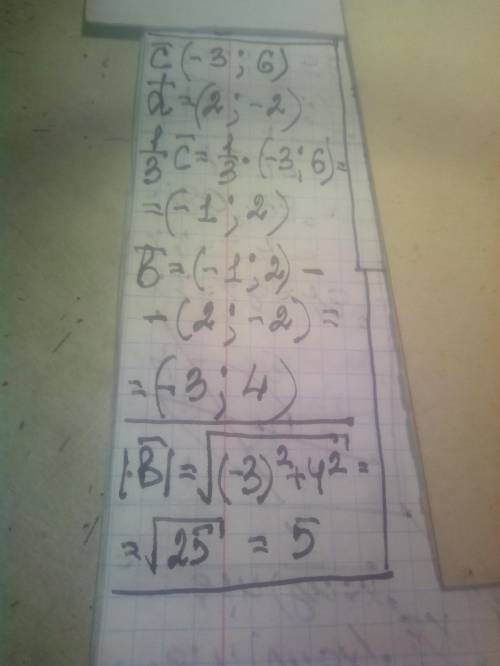 c̄ (-3; 6)
d̄ = (2; -2)
1/3 c̄ = 1/3 · (-3; 6) =
= (-1; 2)
B̄ = (-1; 2) -
- (2; -2) =
= (-3; 4)
|B̄| = √((-3)² + 4²) =
= √25 = 5